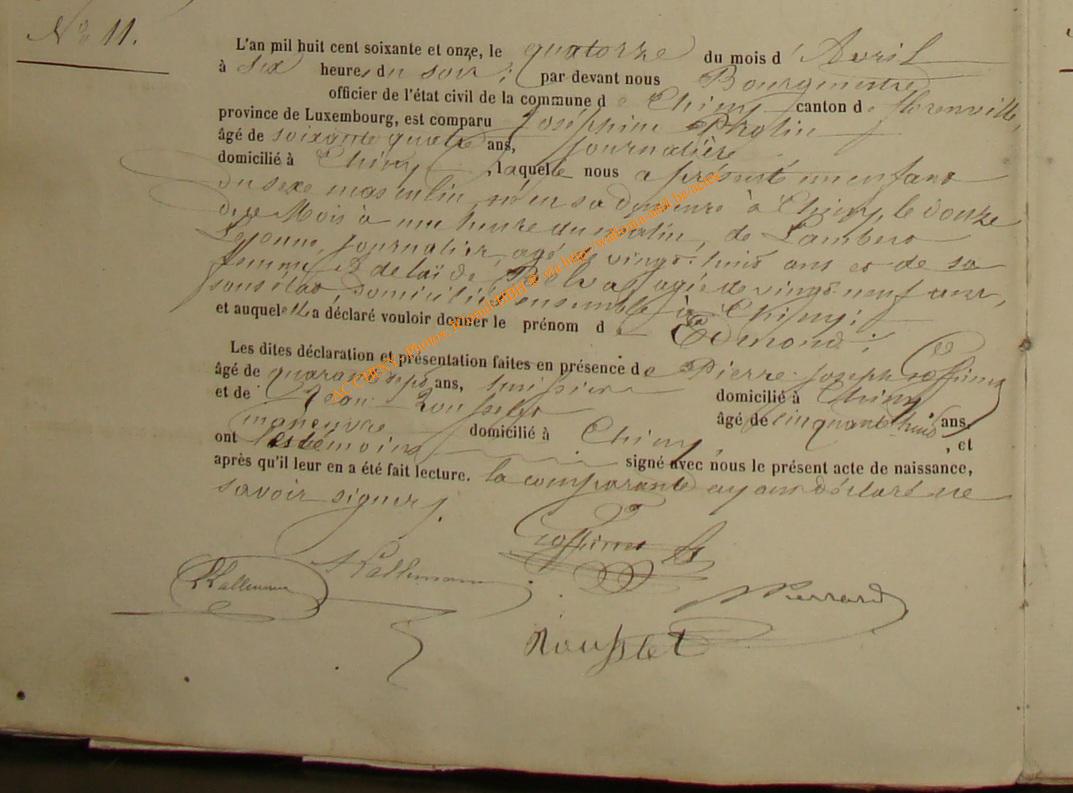 N° 11.
L'an mil huit cent soixante et onze, le quatorze du mois d'Avril
à six heures du soir; par devant nous Bourgmestre
officier de l'état civil de la commune de Chiny canton de florenville,
province de Luxembourg, est comparu Joséphine
âgé de soixante quatre ans, journalière
domicilié à Chiny, laquelle nous a présenté un enfant
du sexe masculin, né en sa demeure à Chiny, le douze
de ce Mois à une heure du matin, de Lambert
Lejeune, journalier, agé de vingt-huit ans et de sa
femme agée de vingt-neuf ans,
sans état, domiciliés ensemble à Chiny;
et auquel elle a déclaré vouloir donner le prénom de Edmond;
Les dites déclaration et présentation faites en présence de Pierre-Joseph Goffinet
âgé de quarante sept ans, huissier domicilié à Chiny
et de Jean Rousselet âgé de cinquante huit ans.
manœuvre domicilié à Chiny, et
ont les témoins signé avec nous le présent acte de naissance,
après qu'il leur en a été fait lecture. la comparante ayant déclaré ne
savoir signer.
Goffinet
Pierrard
Rousslet